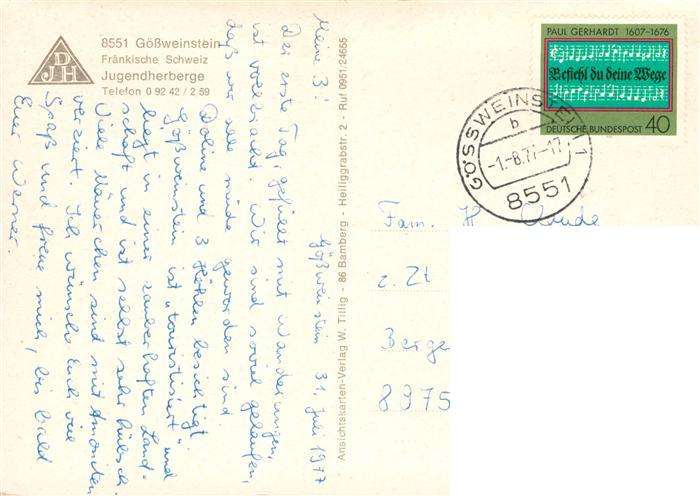 JDH
8551 Gößweinstein
Fränkische Schweiz
Jugendherberge
Telefon 0 92 42 / 2 59
Gößweinstein 31. Juli 1977
Meine 3!
Der erste Tag, gefüllt mit Wanderungen,
ist vollbracht. Wir sind soviel gelaufen,
daß wir alle müde geworden sind.
Doline und 3 Höhlen besichtigt.
Gößweinstein ist "touristisiert" und
liegt in einer zauberhaften Land-
schaft und ist selbst sehr hübsch
Viele Mäuerchen sind mit Amoniten
verziert. Ich wünsche Euch viel
Spaß und freue mich, bis bald
Euer Werner.
Ansichtskarten-Verlag W. Tillig - 86 Bamberg - Heiliggrabstr. 2 - Ruf 0951/24655
PAUL GERHARDT 1607-1676
Befiehl du deine Wege
DEUTSCHE BUNDESPOST 40
GÖSSWEINSTEIN 1
b
-1.-8.77-17
8551
Fam. H
z. Zt
Berge
8975